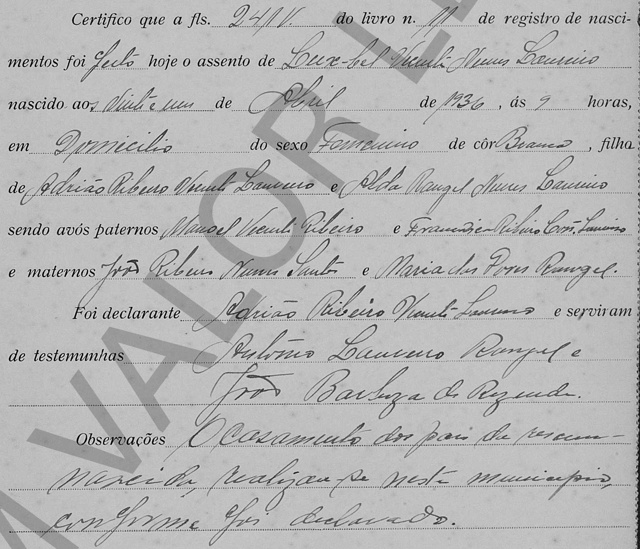 Certifico que a fls. 241V. do livro n. 11 de registro de nasci-
mentos foi feito hoje o assento de Lux-bel Vicente Nunes Laurino
nascido aos vinte e um de Abril de 1936, ás 9 horas,
em Domicilio do sexo Femenino de côr Branca, filha
de Adrião Ribeiro Vicente Laurino e Alda Rangel Nunes Laurino
sendo avós paternos Manoel Vicente Ribeiro e Francisca Ribeiro Laurino
e maternos João Ribeiro Nunes Santos e Maria das Dores Rangel.
Foi declarante Adrião Ribeiro Vicente Laurino e serviram
de testemunhas Antônio Laurino Rangel e
João Barboza de Rezende.
Observações O casamento dos pais da recem-
nascida, realizou-se neste municipio,
conforme foi declarado.
VALOR